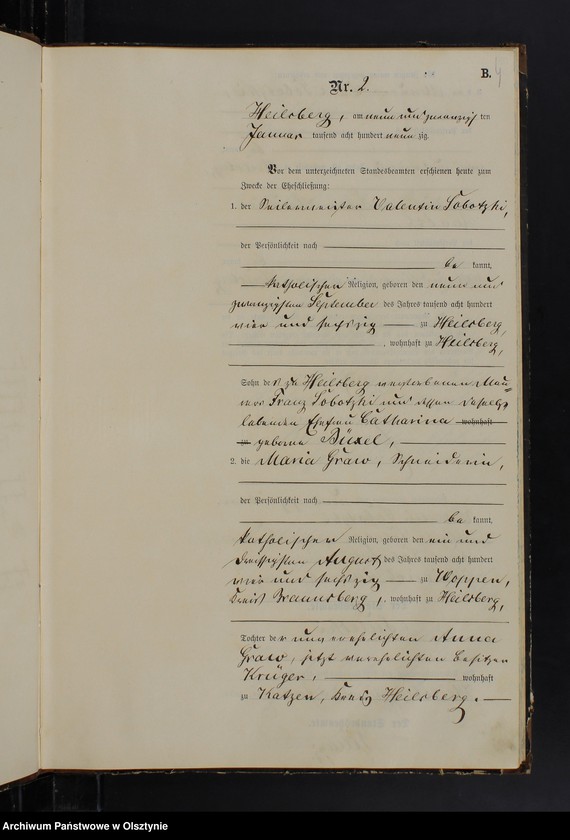 B.
Nr. 2.
Heilsberg, am neun und zwanzigsten
Januar tausend acht hundert neunzig.
Vor dem unterzeichneten Standesbeamten erschienen heute zum
Zwecke der Eheschließung:
1. der Seilermeister Valentin Sobotzki,
der Persönlichkeit nach
be kannt,
katholischen Religion, geboren den neun und
zwanzigsten September des Jahres tausend acht hundert
vier und sechszig zu Heilsberg,
, wohnhaft zu Heilsberg,
Sohn des zu Heilsberg verstorbenen Mau=
rers Franz Sobotzki und dessen daselbst
lebenden Ehefrau Catharina wohnhaft
zu geborne Büxel,
2. die Maria Graw, Schneiderin,
der Persönlichkeit nach
be kannt,
katholischen Religion, geboren den ein und
dreissigsten August des Jahres tausend acht hundert
vier und sechszig zu Woppen,
Kreis Braunsberg, , wohnhaft zu Heilsberg,
Tochter der unverehelichten Anna
Graw, jetzt verehelichten Besitzer
Krüger, wohnhaft
zu Katzen, Kreis Heilsberg.
Archiwum Państwowe w Olsztynie